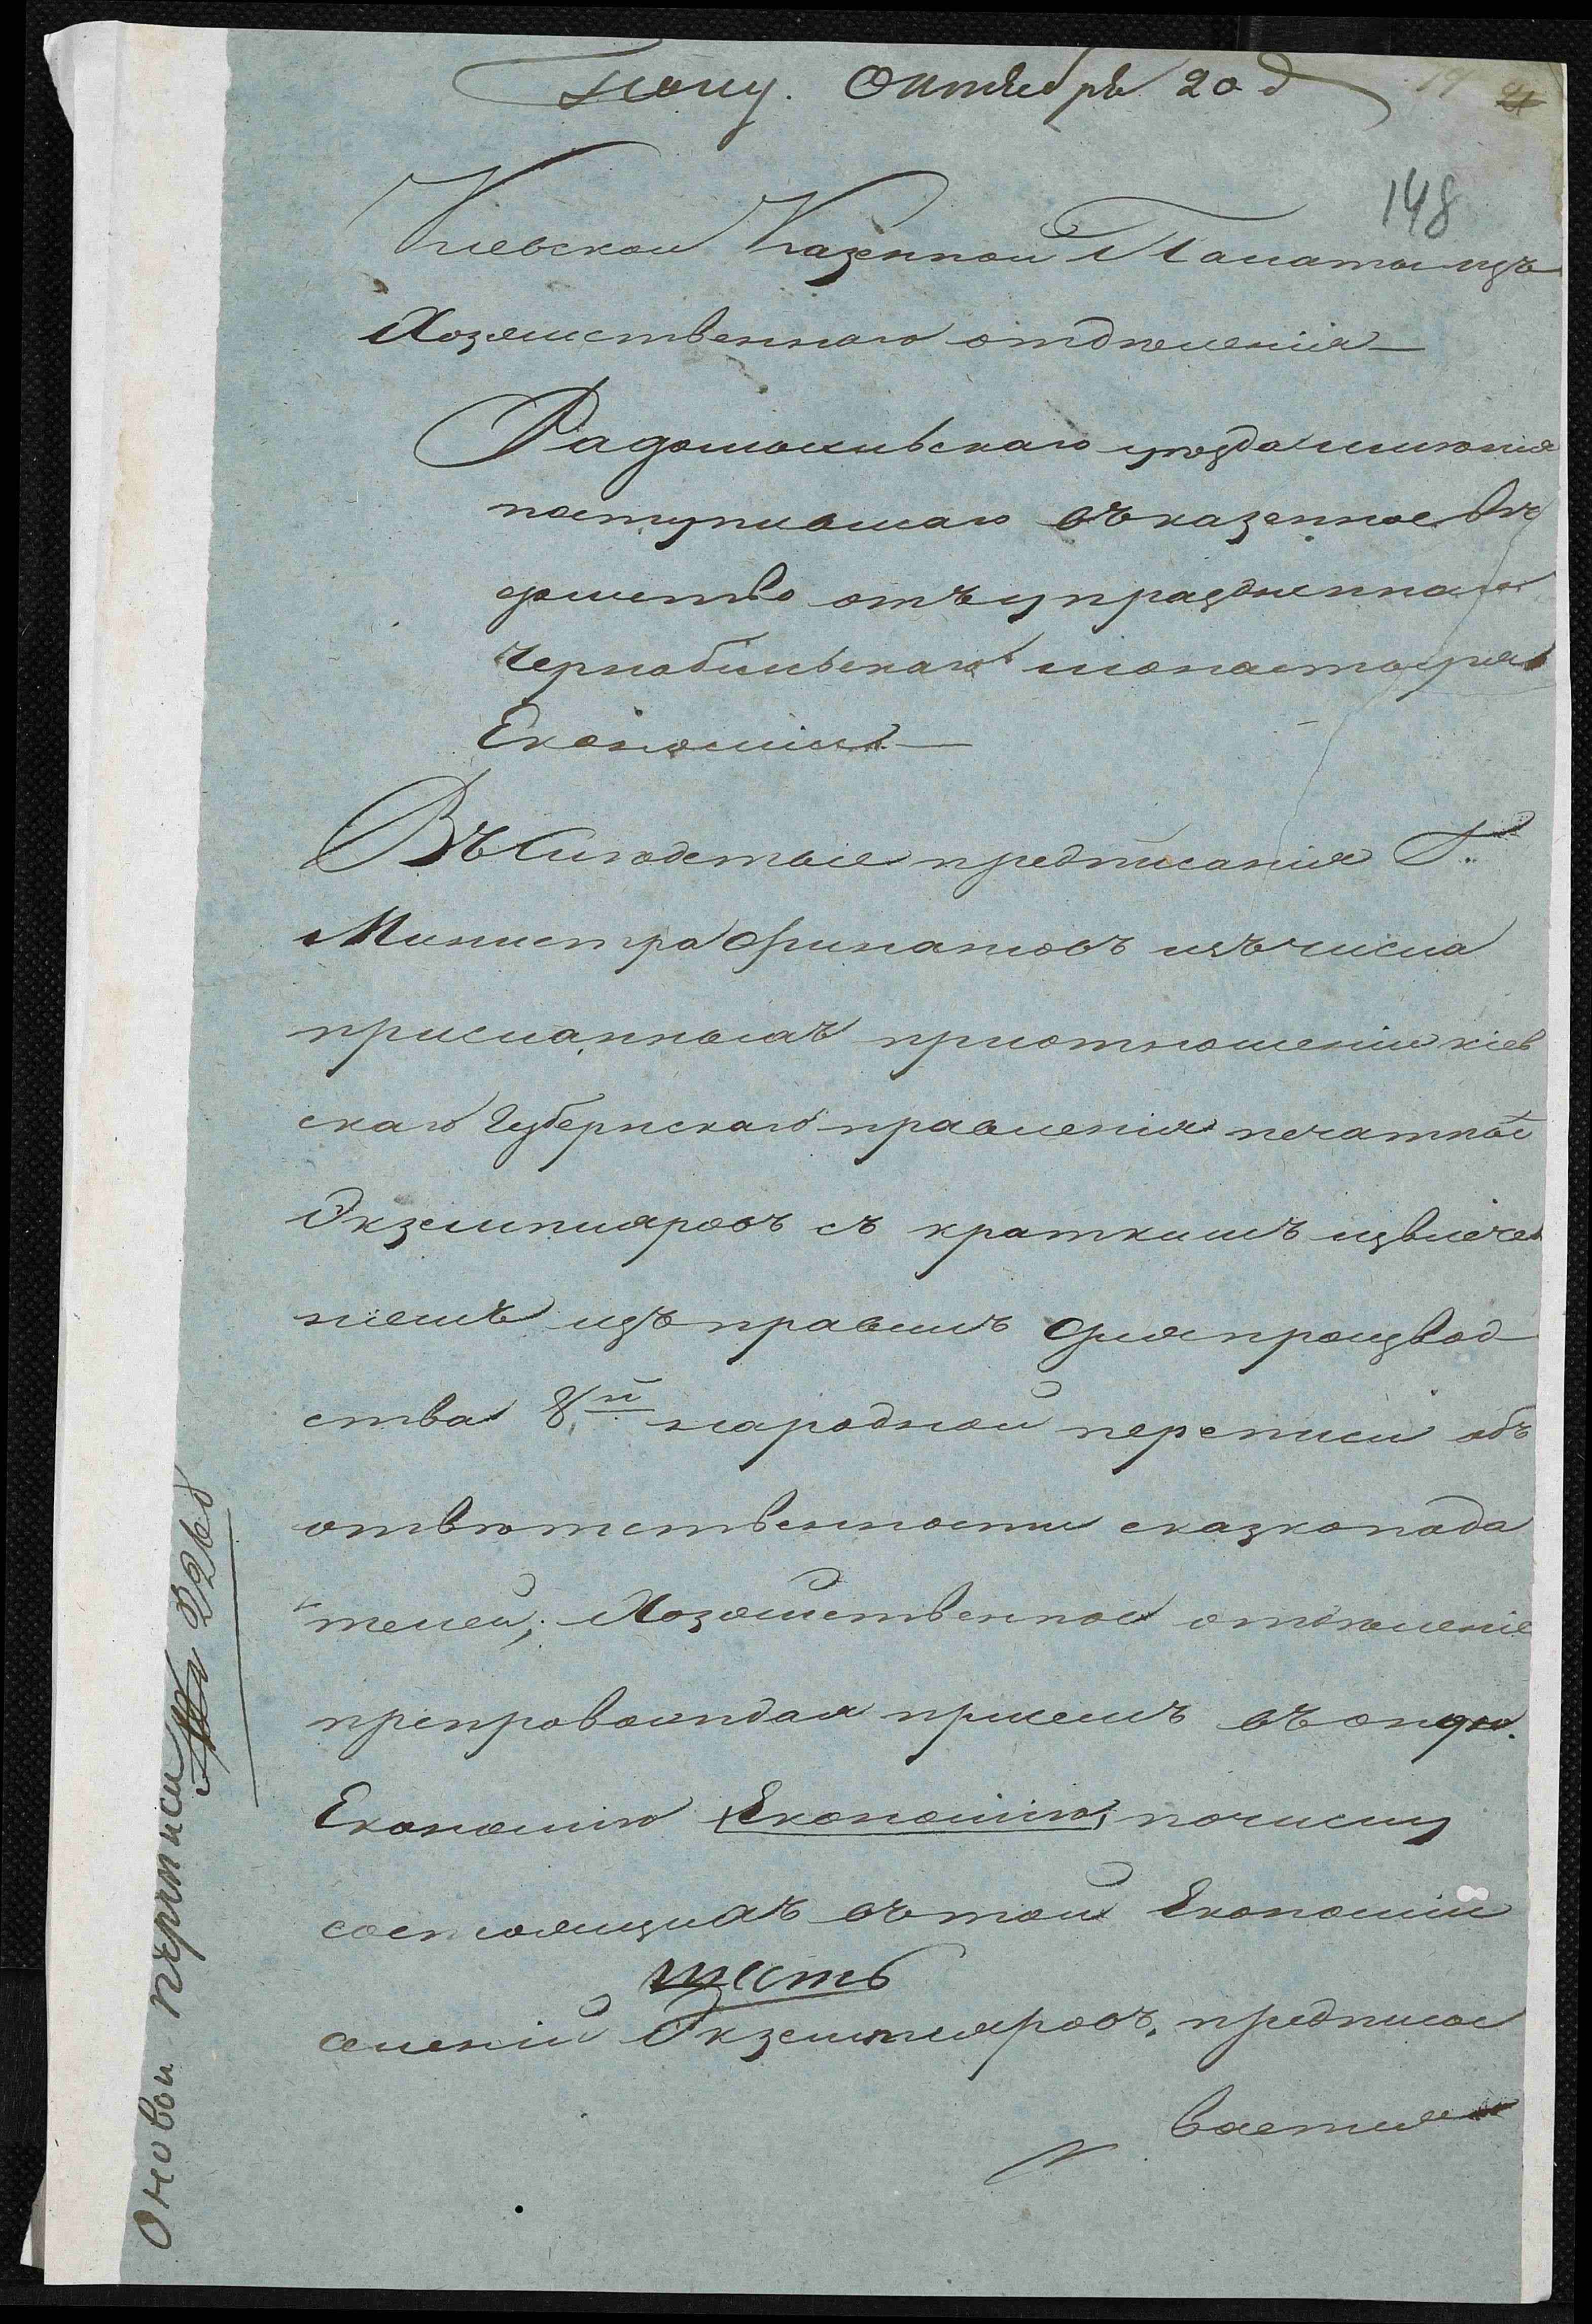 Полу. Октября 20 д
148
Кіевской Казенной Палаты изъ
Хозяйственнаго отдѣленія
Радомысльскаго уѣзда имѣнія
поступившаго въ казенное вѣ
домство отъ упраздненнаго
Чернобыльскаго монастыря
Економіи
Въ слѣдствіе предписанія Г.
Министра Финансовъ изъ числа
присланныхъ при отношеніи кіев
скаго Губернскаго правленія печатныхъ
Экземпляровъ съ краткимъ извлече
ніемъ изъ правилъ для производ
ства 8й народной переписи объ
отвѣтственности сказкопода
телей, Хозяйственное отдѣленіе
препровождая при семъ въ
Економію Економію, по числу
состоящихъ въ той Економіи
шесть
селеній Экземпляровъ, предписы
ваетъ
О новой переписи